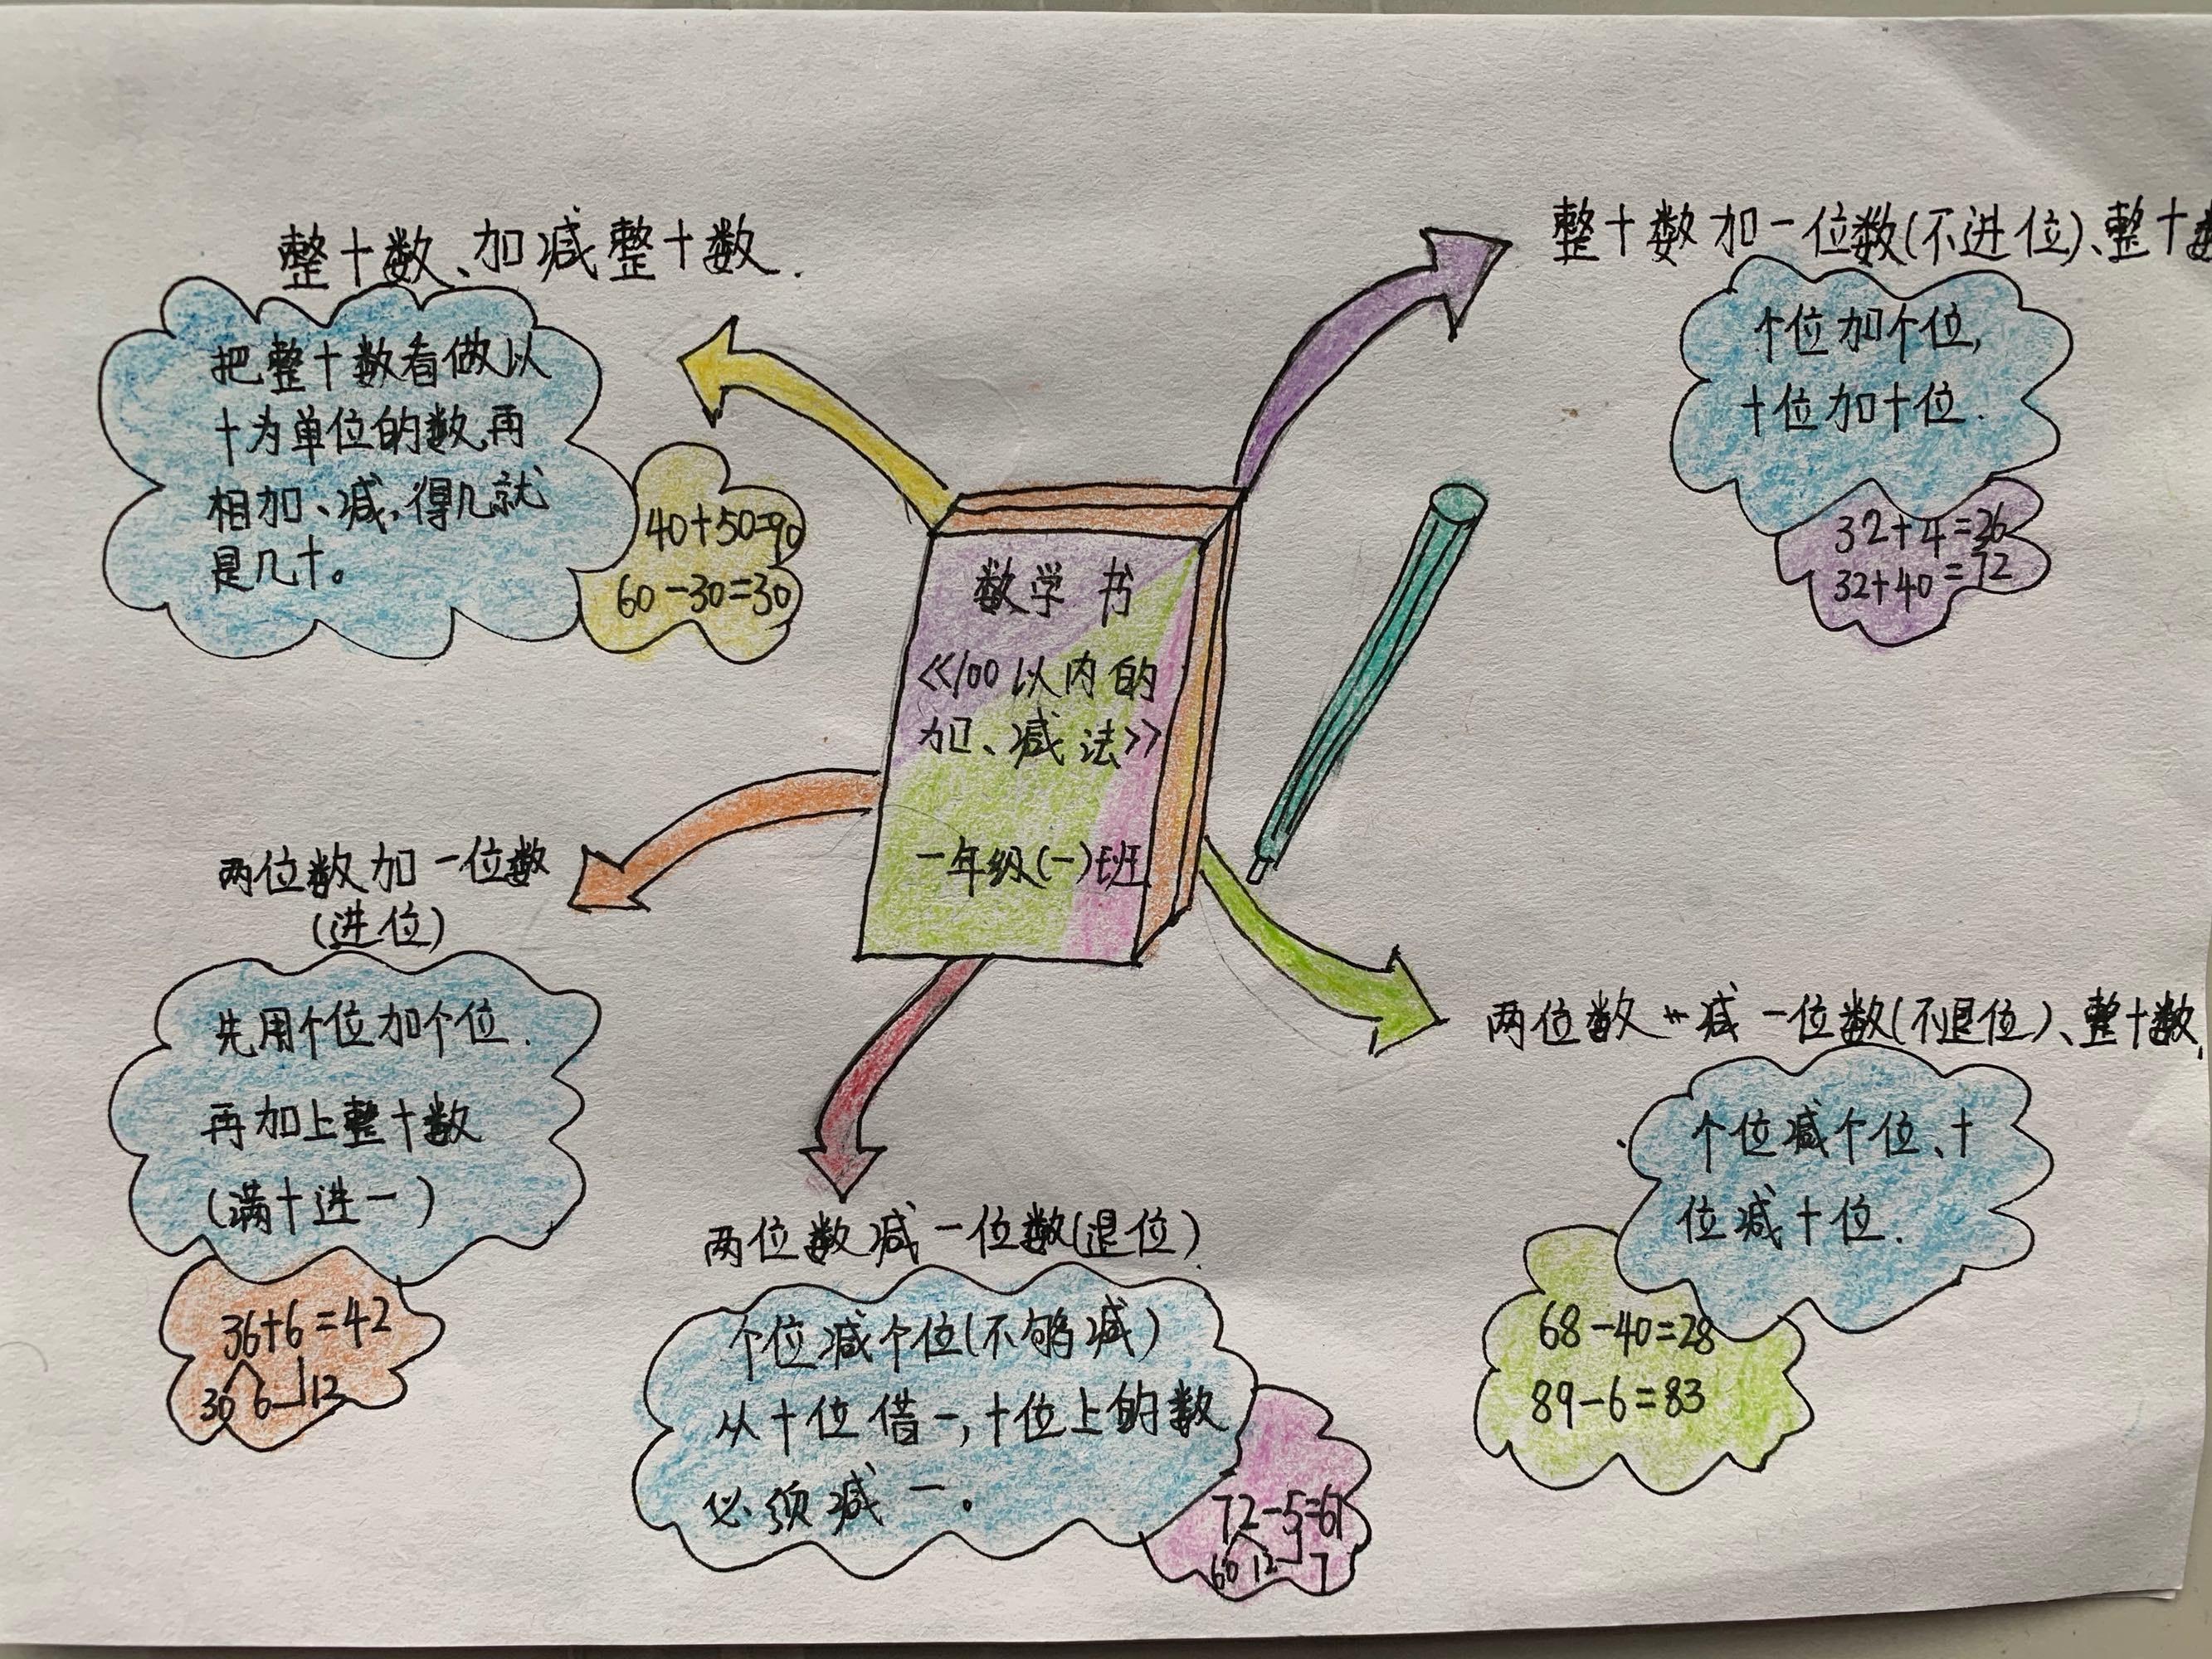 整十数、加减整十数.
把整十数看做以
十为单位的数,再
相加、减,得几就
是几十。
40+50=90
60-30=30
整十数加一位数(不进位)、整十数
个位加个位,
十位加十位.
32+4=36
32+40=72
数学书
<<100以内的
加、减法>>
一年级(一)班
两位数加一位数
(进位)
先用个位加个位.
再加上整十数
(满十进一)
36+6=42
30 6 12
两位数减一位数(退位).
个位减个位(不够减)
从十位借一,十位上的数
必须减一。
72-5=67
60 12 7
两位数减一位数(不退位)、整十数,
个位减个位、十
位减十位.
68-40=28
89-6=83